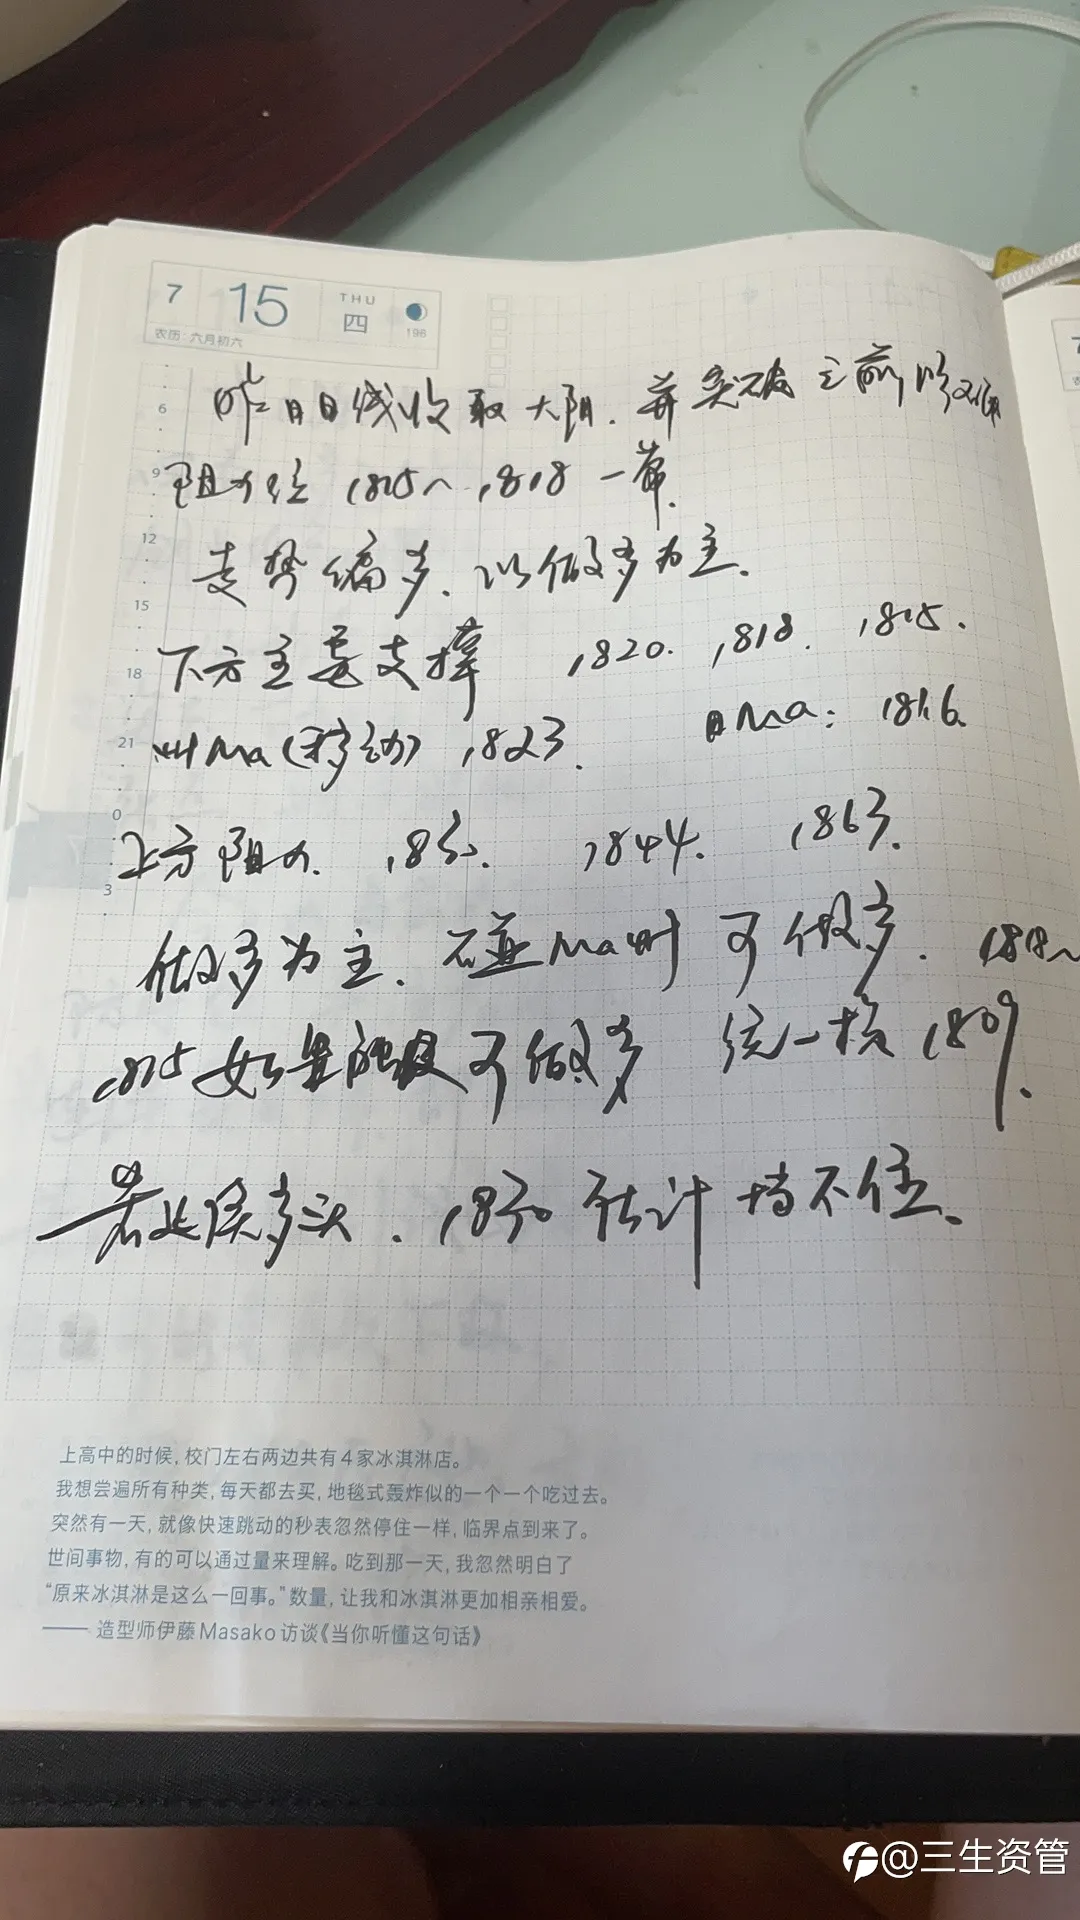 7 15 THU 四
农历:六月初六 196
昨日日线收取大阳.并突破之前形成
6
阻力位 1815~1818一带.
9
12
走势偏多.以做多为主.
15
下方主要支撑 1820. 1818. 1815.
18
4H Ma(移动) 1823. 日Ma: 1816.
21
0
上方阻力. 1830. 1844. 1863.
3
做多为主.碰Ma时可做多. 1818~
1815如果触及可做多 统一损1809.
若延续多头.1830估计挡不住.
上高中的时候,校门左右两边共有4家冰淇淋店。
我想尝遍所有种类,每天都去买,地毯式轰炸似的一个一个吃过去。
突然有一天,就像快速跳动的秒表忽然停住一样,临界点到来了。
世间事物,有的可以通过量来理解。吃到那一天,我忽然明白了
“原来冰淇淋是这么一回事。”数量,让我和冰淇淋更加相亲相爱。
—— 造型师伊藤Masako访谈《当你听懂这句话》
@三生资管